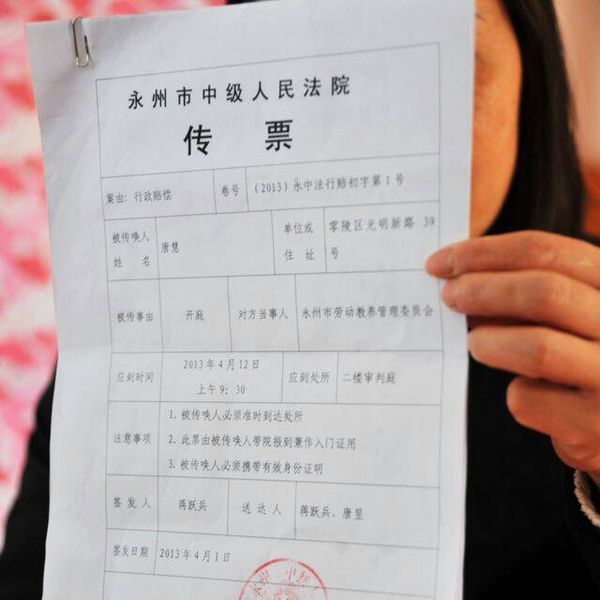 永州市中级人民法院
传 票
案由：行政赔偿 卷号 （2013）永中法行赔初字第1号
被传唤人 单位或 零陵区光明新路 39
姓 名 唐慧 住 址 号
被传事由 开庭 对方当事人 永州市劳动教养管理委员会
应到时间 2013年4月12日 应到处所 二楼审判庭
上午9：30
1. 被传唤人必须准时到达处所
注意事项 2. 此票由被传唤人带院报到兼作入门证用
3. 被传唤人必须携带有效身份证明
签 发 人 蒋跃兵 送 达 人 蒋跃兵、唐昱
签发日期 2013年4月1日
永州 中级